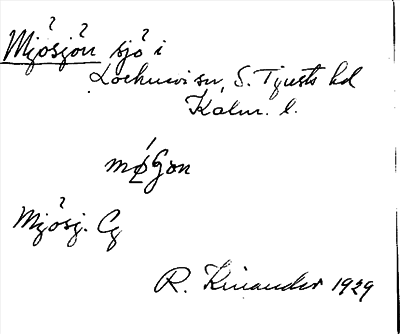 Mjösjön sjö i
Locknevi sn, S. Tjusts hd
Kalm. l.
Mjösj. Cg
R. Kinander 1929